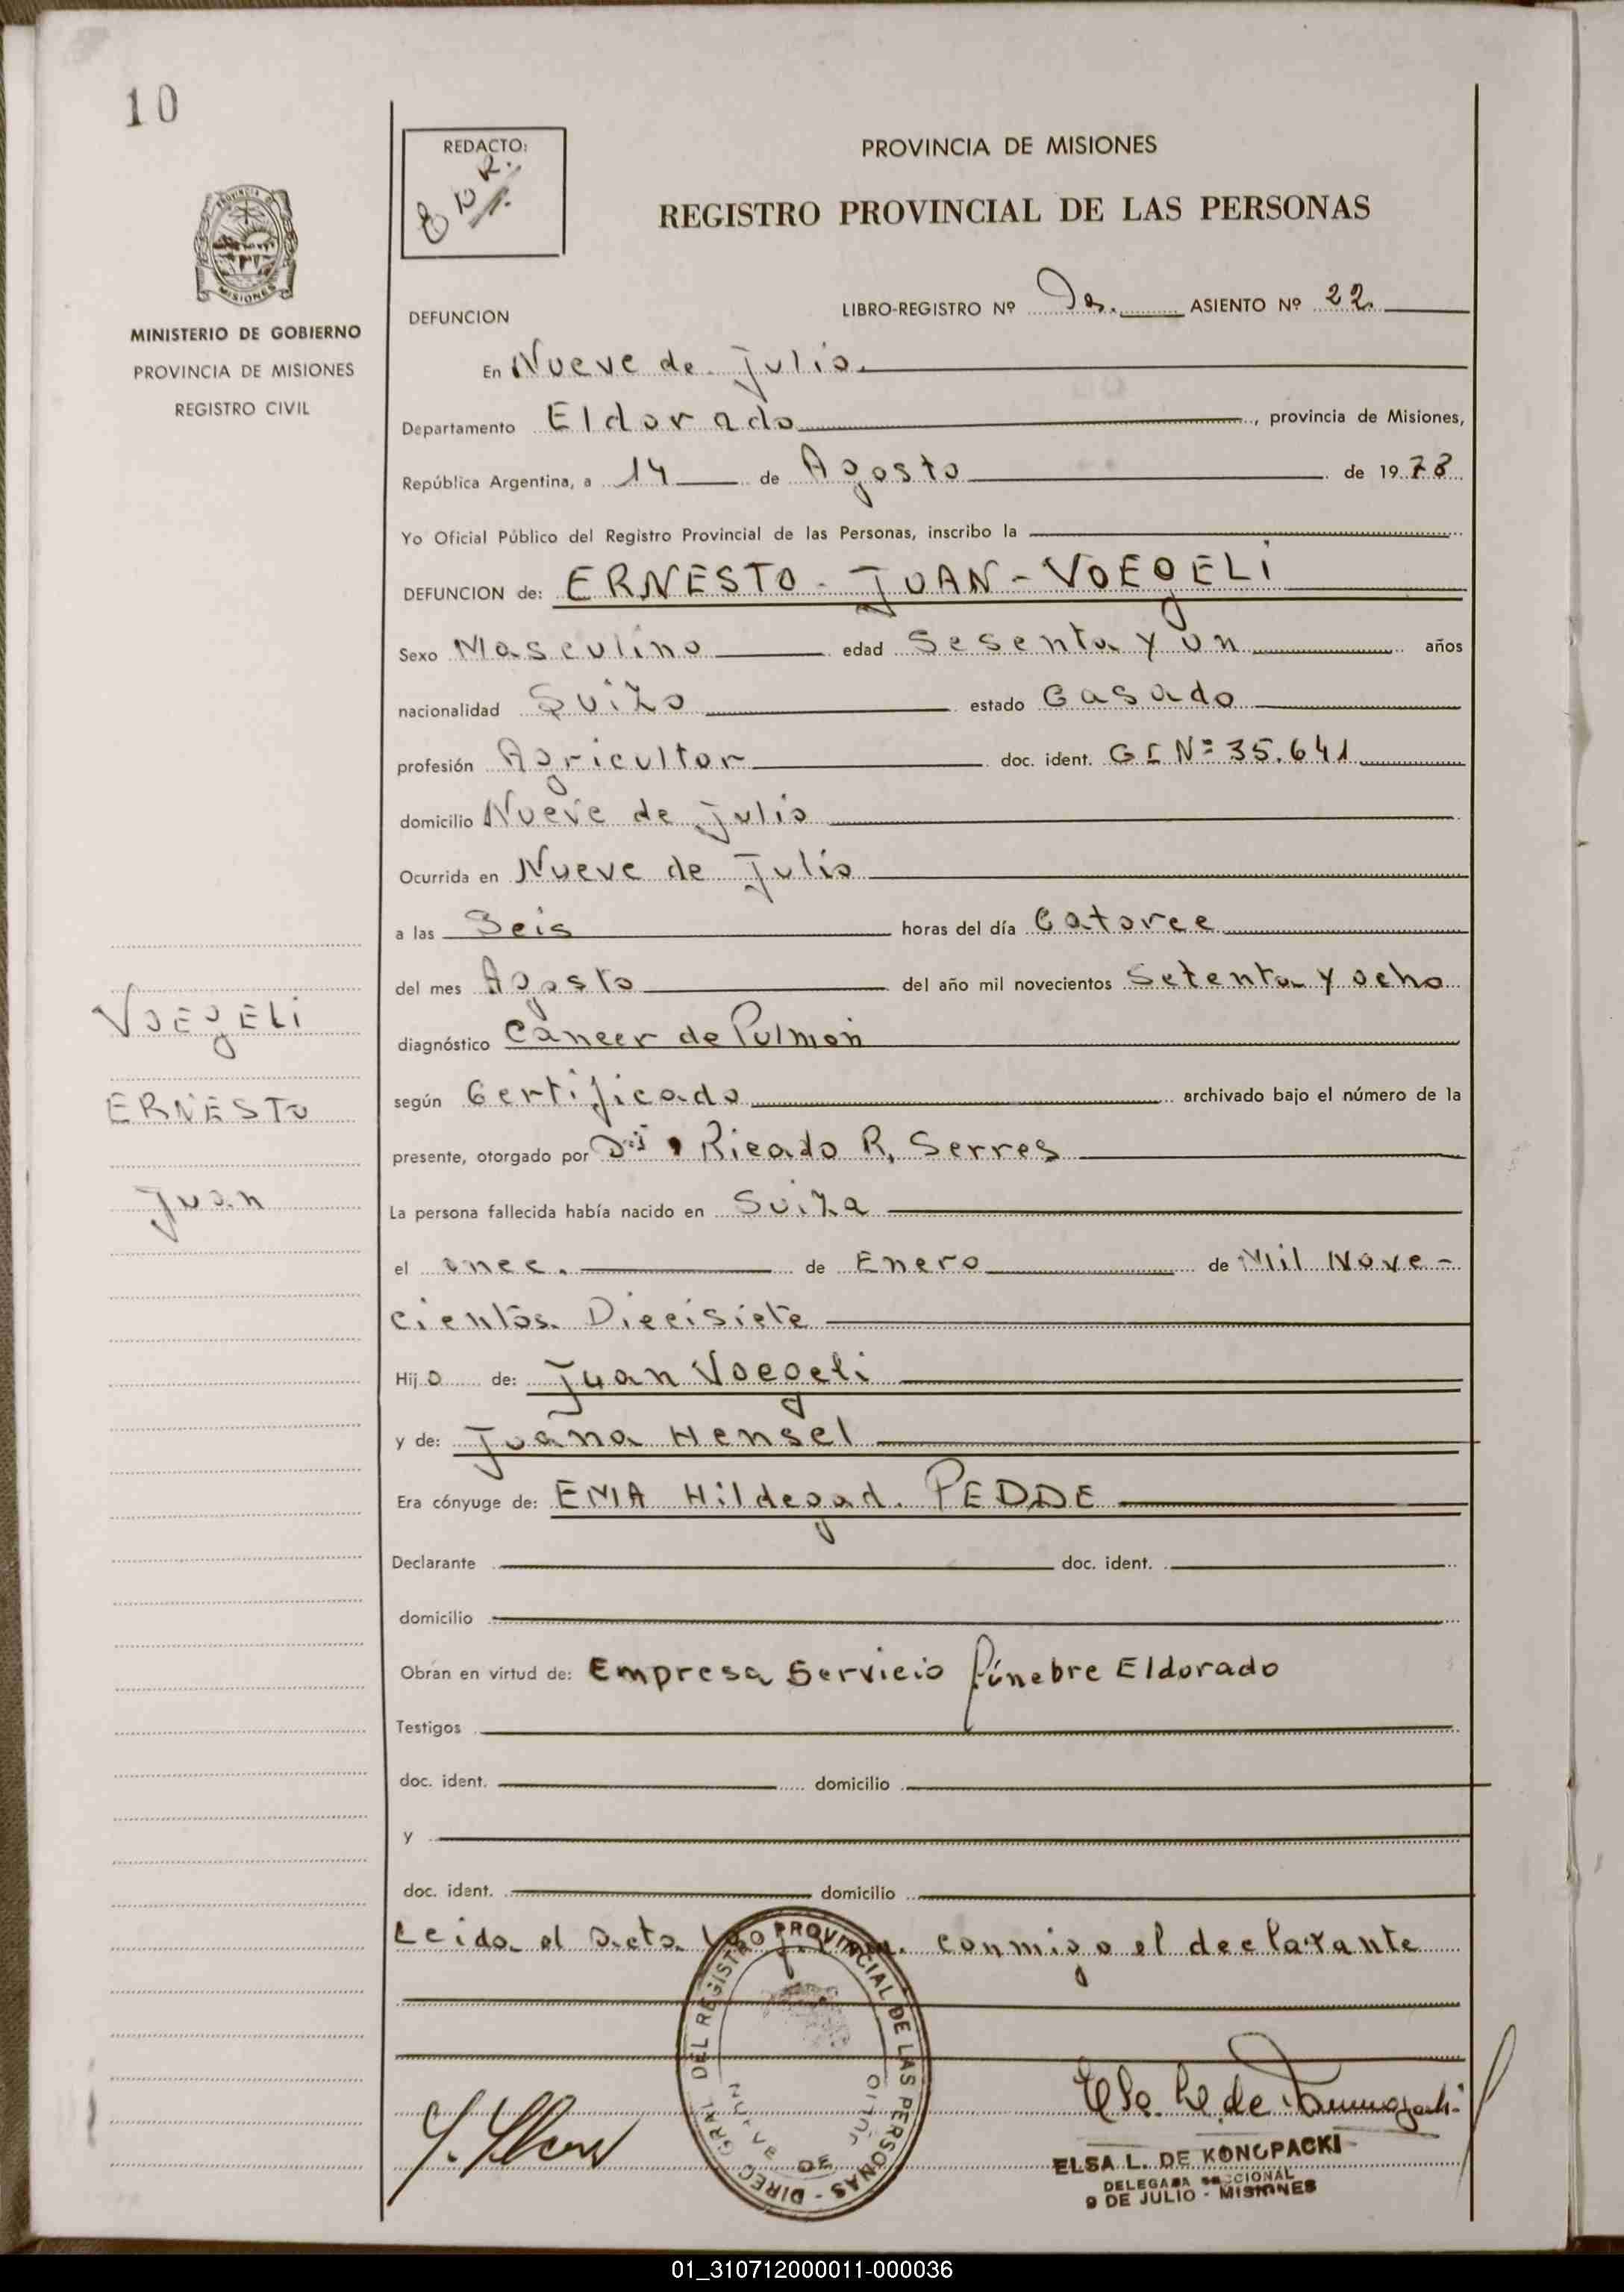 10
REDACTO:
PROVINCIA DE MISIONES
REGISTRO PROVINCIAL DE LAS PERSONAS
MISIONES
MINISTERIO DE GOBIERNO
PROVINCIA DE MISIONES
REGISTRO CIVIL
DEFUNCION
LIBRO-REGISTRO Nº ASIENTO Nº 22.
En Nueve de Julio.
Departamento Eldorado, provincia de Misiones,
República Argentina, a 14 de Agosto de 1978
Yo Oficial Público del Registro Provincial de las Personas, inscribo la
DEFUNCION de: ERNESTO - JUAN - VOEGELI
Sexo Masculino edad Sesenta y un años
nacionalidad Suizo estado Casado
profesión Agricultor doc. ident. CI Nº 35.641
domicilio Nueve de Julio
Ocurrida en Nueve de Julio
a las Seis horas del día Catorce
del mes Agosto del año mil novecientos Setenta y ocho
VOEGELI
diagnóstico Cáncer de Pulmón
ERNESTO
según Certificado archivado bajo el número de la
presente, otorgado por Ricado R. Serres
Juan
La persona fallecida había nacido en Suiza
el once. de Enero de Mil Nove-
cientos Diecisiete
Hijo de: Juan Voegeli
y de: Juana Hensel
Era cónyuge de: EMA Hildegad. PEDDE
Declarante doc. ident.
domicilio
Obran en virtud de: Empresa Servicio fúnebre Eldorado
Testigos
doc. ident. domicilio
y
doc. ident. domicilio
Leida el acta conmigo el declarante
DIREC. GRAL. DEL REGISTRO PROVINCIAL DE LAS PERSONAS
NUEVE DE JULIO
ELSA L. DE KONOPACKI
DELEGADA SECCIONAL
9 DE JULIO - MISIONES
01_310712000011-000036